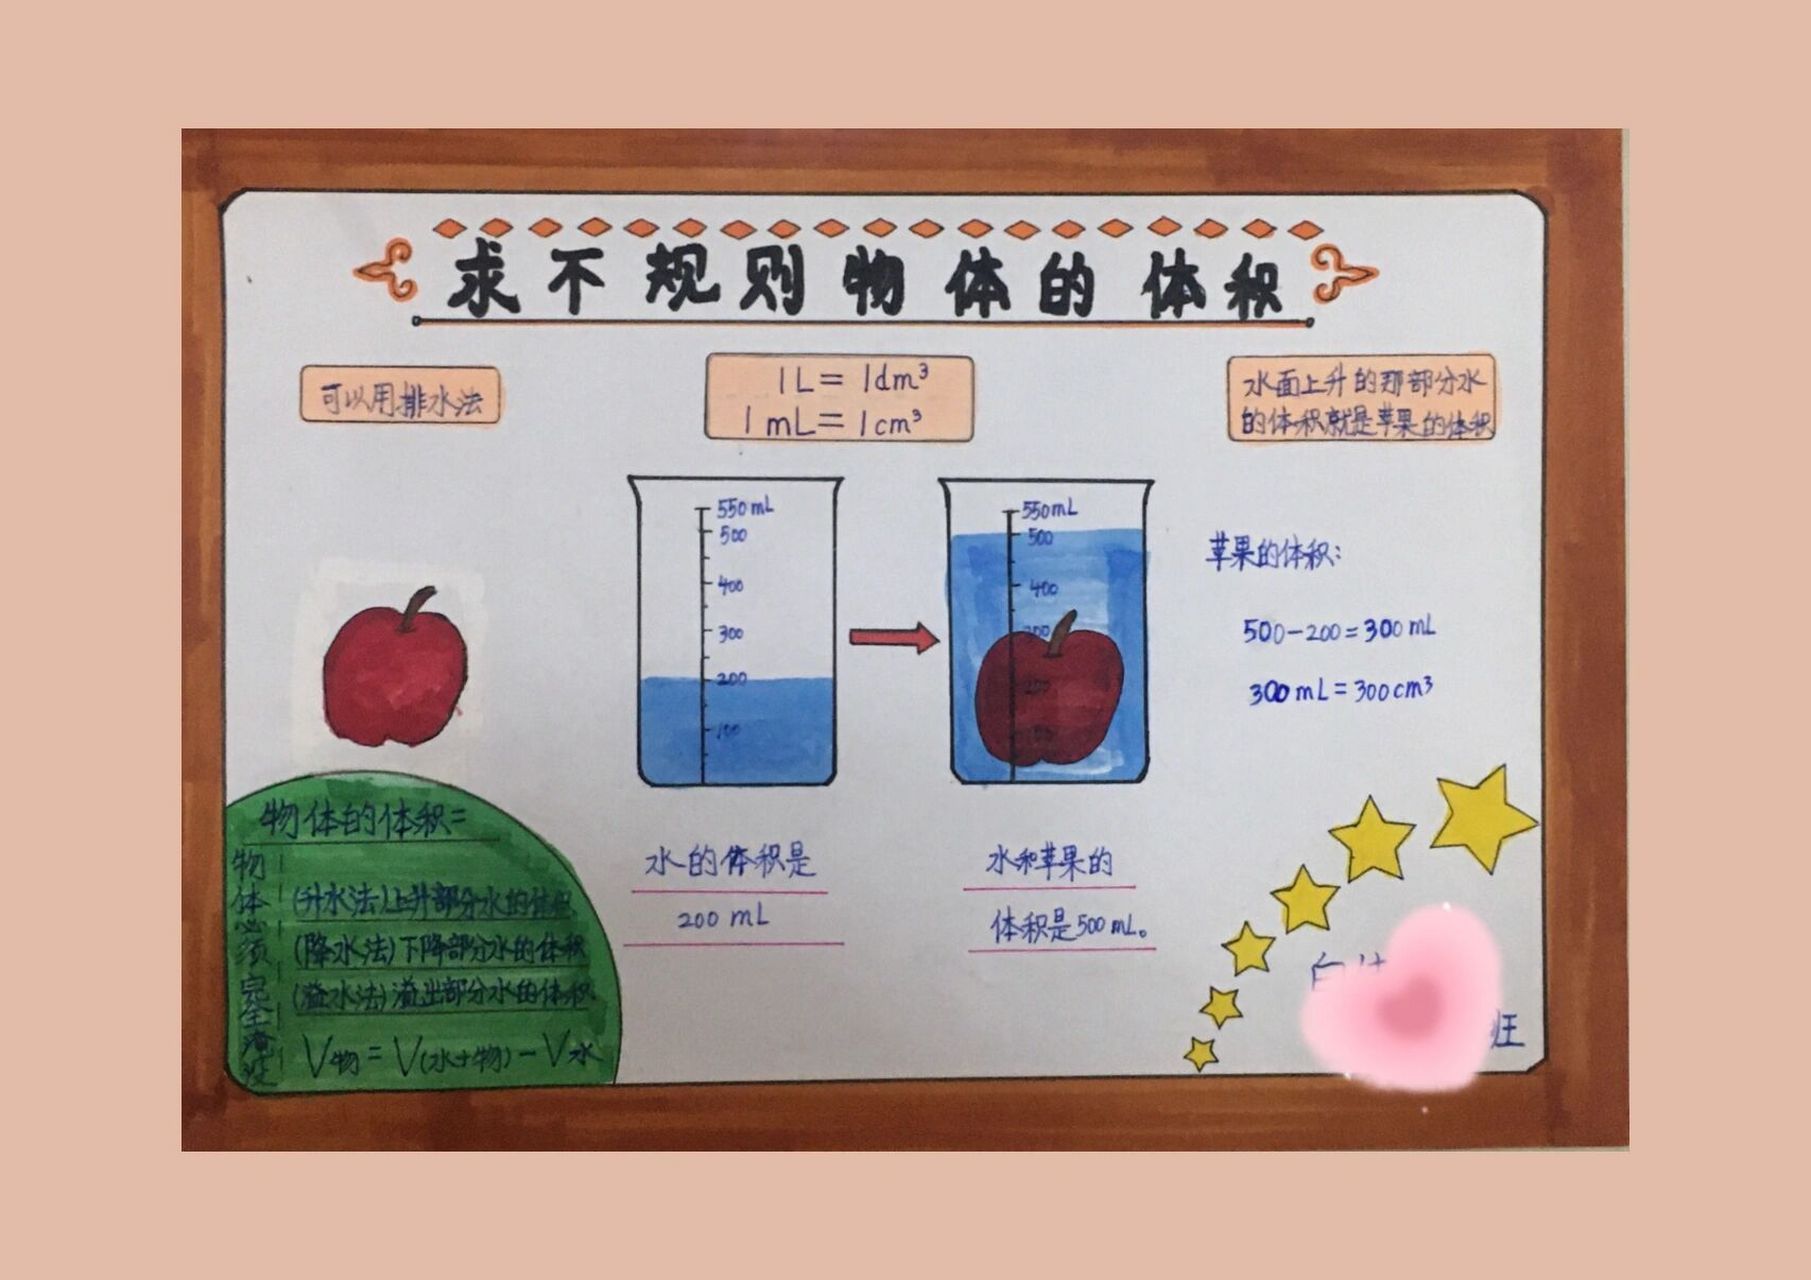 求不规则物体的体积
可以用排水法
1L=1dm³
1mL=1cm³
水面上升的那部分水
的体积就是苹果的体积
550mL
500
400
300
200
100
550mL
500
400
300
200
100
苹果的体积:
500-200=300mL
300mL=300cm³
水的体积是
200mL
水和苹果的
体积是500mL。
物体的体积=
物体必须完全淹没
(升水法)上升部分水的体积
(降水法)下降部分水的体积
(溢水法)溢出部分水的体积
V物=V(水+物)-V水
班